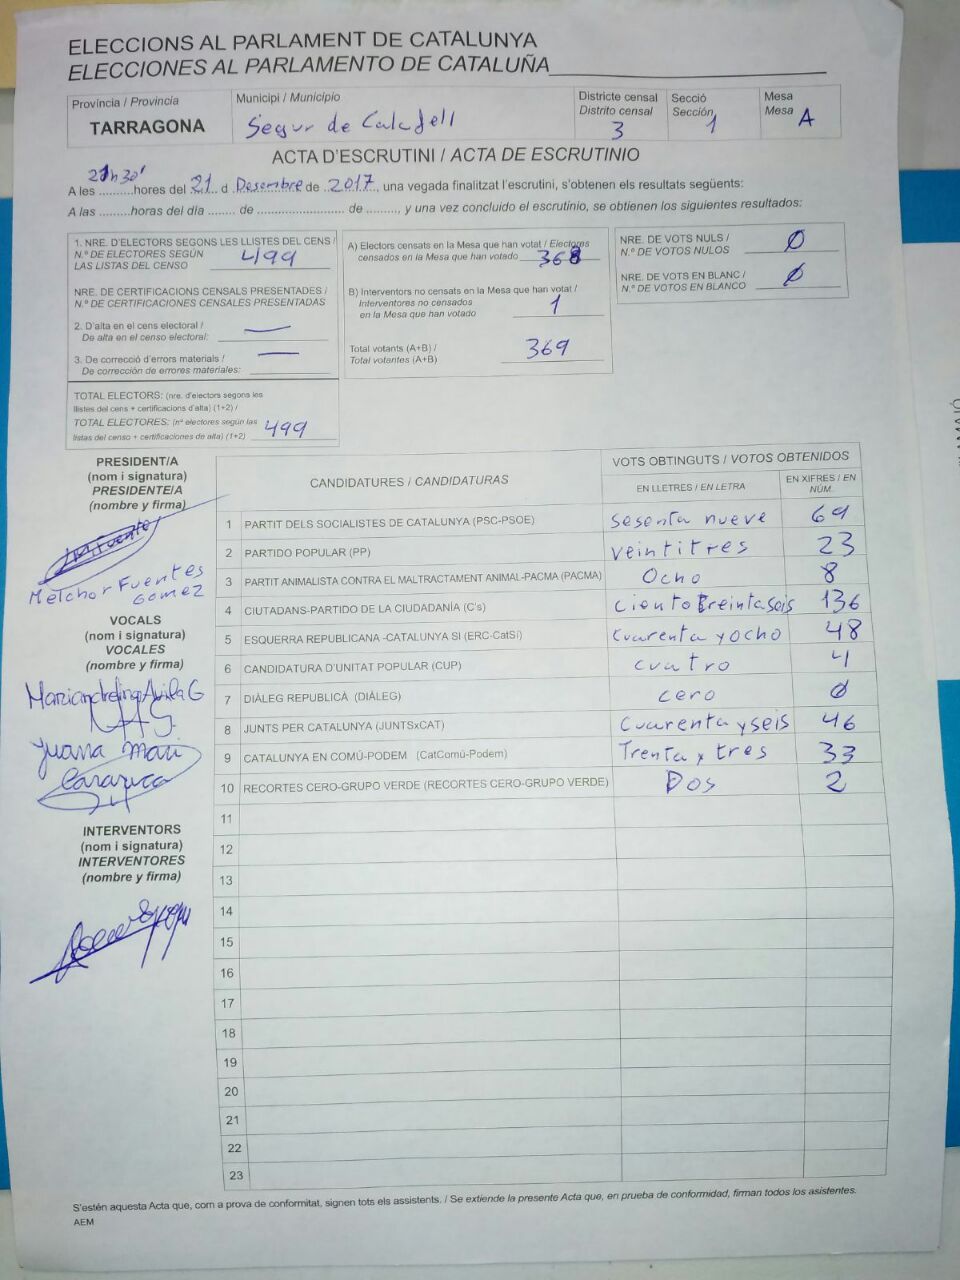 ELECCIONS AL PARLAMENT DE CATALUNYA
ELECCIONES AL PARLAMENTO DE CATALUÑA
Província / Provincia
TARRAGONA
Municipi / Municipio
Segur de Calafell
Districte censal
Distrito censal
3
Secció
Sección
1
Mesa
Mesa
A
ACTA D'ESCRUTINI / ACTA DE ESCRUTINIO
21h 30'
A les ..........hores del 21 d Desembre de 2017, una vegada finalitzat l'escrutini, s'obtenen els resultats següents:
A las .........horas del día ........ de ........................ de ........., y una vez concluido el escrutinio, se obtienen los siguientes resultados:
1. NRE. D'ELECTORS SEGONS LES LLISTES DEL CENS /
N.º DE ELECTORES SEGÚN
LAS LISTAS DEL CENSO
499
NRE. DE CERTIFICACIONS CENSALS PRESENTADES /
N.º DE CERTIFICACIONES CENSALES PRESENTADAS
2. D'alta en el cens electoral /
De alta en el censo electoral: —
3. De correcció d'errors materials /
De corrección de errores materiales: —
TOTAL ELECTORS: (nre. d'electors segons les
llistes del cens + certificacions d'alta) (1+2) /
TOTAL ELECTORES: (nº electores según las
listas del censo + certificaciones de alta) (1+2) 499
A) Electors censats en la Mesa que han votat / Electores
censados en la Mesa que han votado 368
B) Interventors no censats en la Mesa que han votat /
Interventores no censados
en la Mesa que han votado
1
Total votants (A+B) /
Total votantes (A+B)
369
NRE. DE VOTS NULS /
N.º DE VOTOS NULOS
0
NRE. DE VOTS EN BLANC /
N.º DE VOTOS EN BLANCO
0
PRESIDENT/A
(nom i signatura)
PRESIDENTE/A
(nombre y firma)
Melchor Fuentes
Gomez
VOCALS
(nom i signatura)
VOCALES
(nombre y firma)
Juana Mari
INTERVENTORS
(nom i signatura)
INTERVENTORES
(nombre y firma)
CANDIDATURES / CANDIDATURAS
VOTS OBTINGUTS / VOTOS OBTENIDOS
EN LLETRES / EN LETRA
EN XIFRES / EN NÚM.
1 PARTIT DELS SOCIALISTES DE CATALUNYA (PSC-PSOE) sesenta nueve 69
2 PARTIDO POPULAR (PP) veintitres 23
3 PARTIT ANIMALISTA CONTRA EL MALTRACTAMENT ANIMAL-PACMA (PACMA) Ocho 8
4 CIUTADANS-PARTIDO DE LA CIUDADANÍA (C's) ciento treintaseis 136
5 ESQUERRA REPUBLICANA -CATALUNYA SI (ERC-CatSí) Cuarenta y ocho 48
6 CANDIDATURA D'UNITAT POPULAR (CUP) cuatro 4
7 DIÀLEG REPUBLICÀ (DIÀLEG) cero 0
8 JUNTS PER CATALUNYA (JUNTSxCAT) Cuarenta y seis 46
9 CATALUNYA EN COMÚ-PODEM (CatComú-Podem) Trenta y tres 33
10 RECORTES CERO-GRUPO VERDE (RECORTES CERO-GRUPO VERDE) Dos 2
11
12
13
14
15
16
17
18
19
20
21
22
23
S'estén aquesta Acta que, com a prova de conformitat, signen tots els assistents. / Se extiende la presente Acta que, en prueba de conformidad, firman todos los asistentes.
AEM